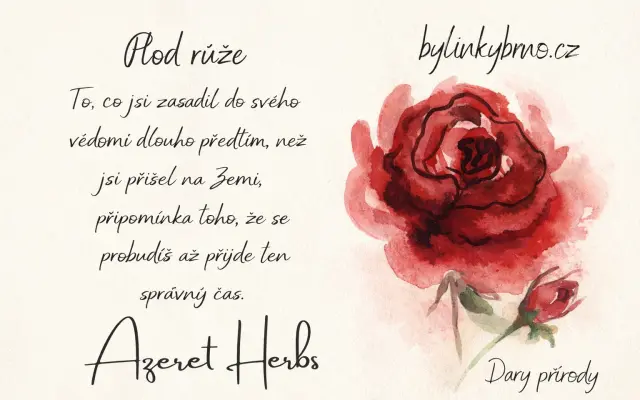 Plod růže
bylinkybrno.cz
To, co jsi zasadil do svého
vědomí dlouho předtím, než
jsi přišel na Zemi,
připomínka toho, že se
probudíš až přijde ten
správný čas.
Azeret Herbs
Dary přírody